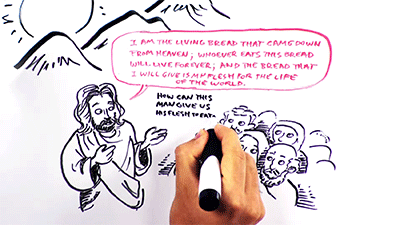 I AM THE LIVING BREAD THAT CAME DOWN
FROM HEAVEN; WHOEVER EATS THIS BREAD
WILL LIVE FOREVER; AND THE BREAD THAT
I WILL GIVE IS MY FLESH FOR THE LIFE
OF THE WORLD.
HOW CAN THIS
MAN GIVE US
HIS FLESH TO EAT